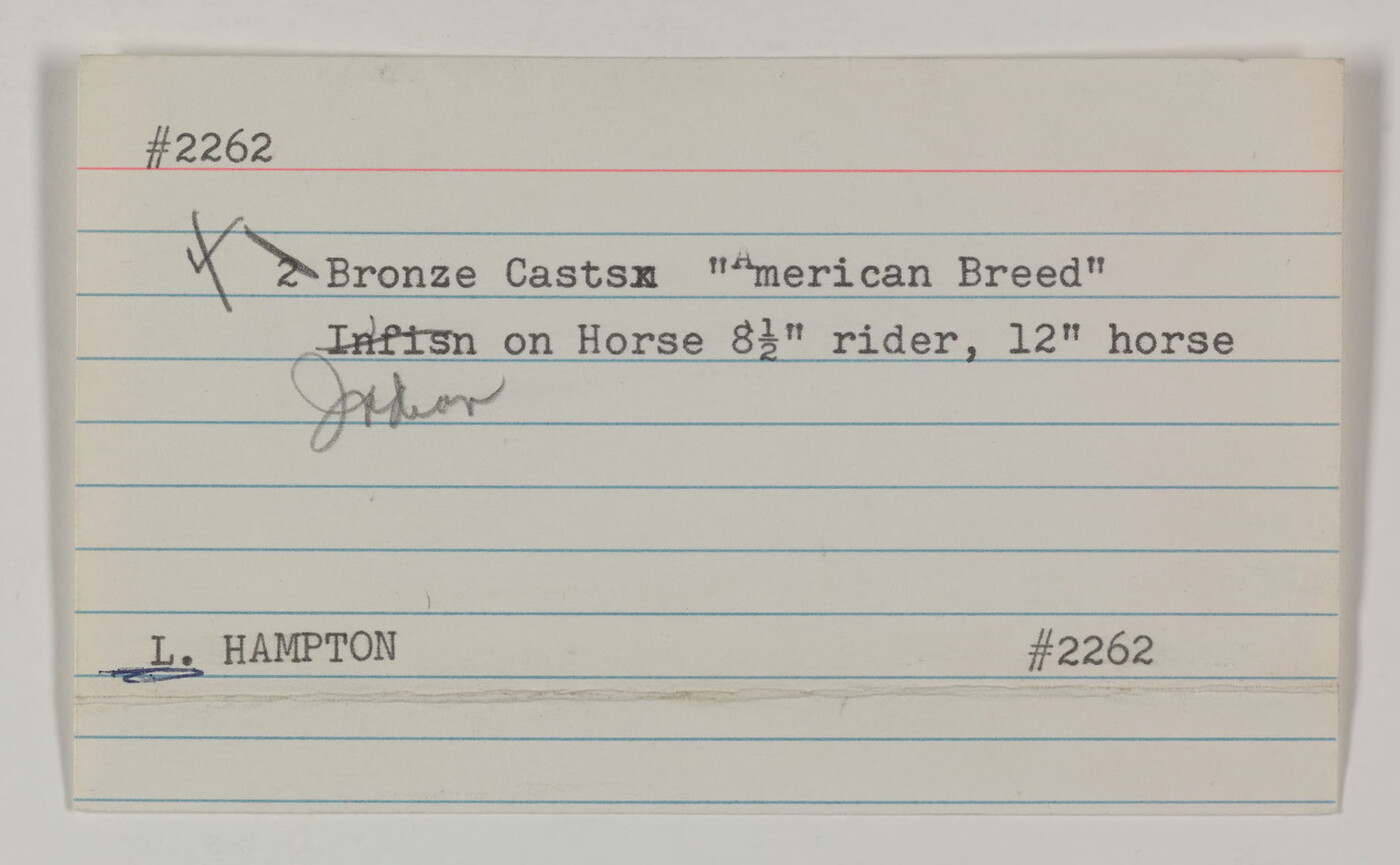 #2262
2 Bronze Castsx "American Breed"
Infisn on Horse 8½" rider, 12" horse
L. HAMPTON #2262